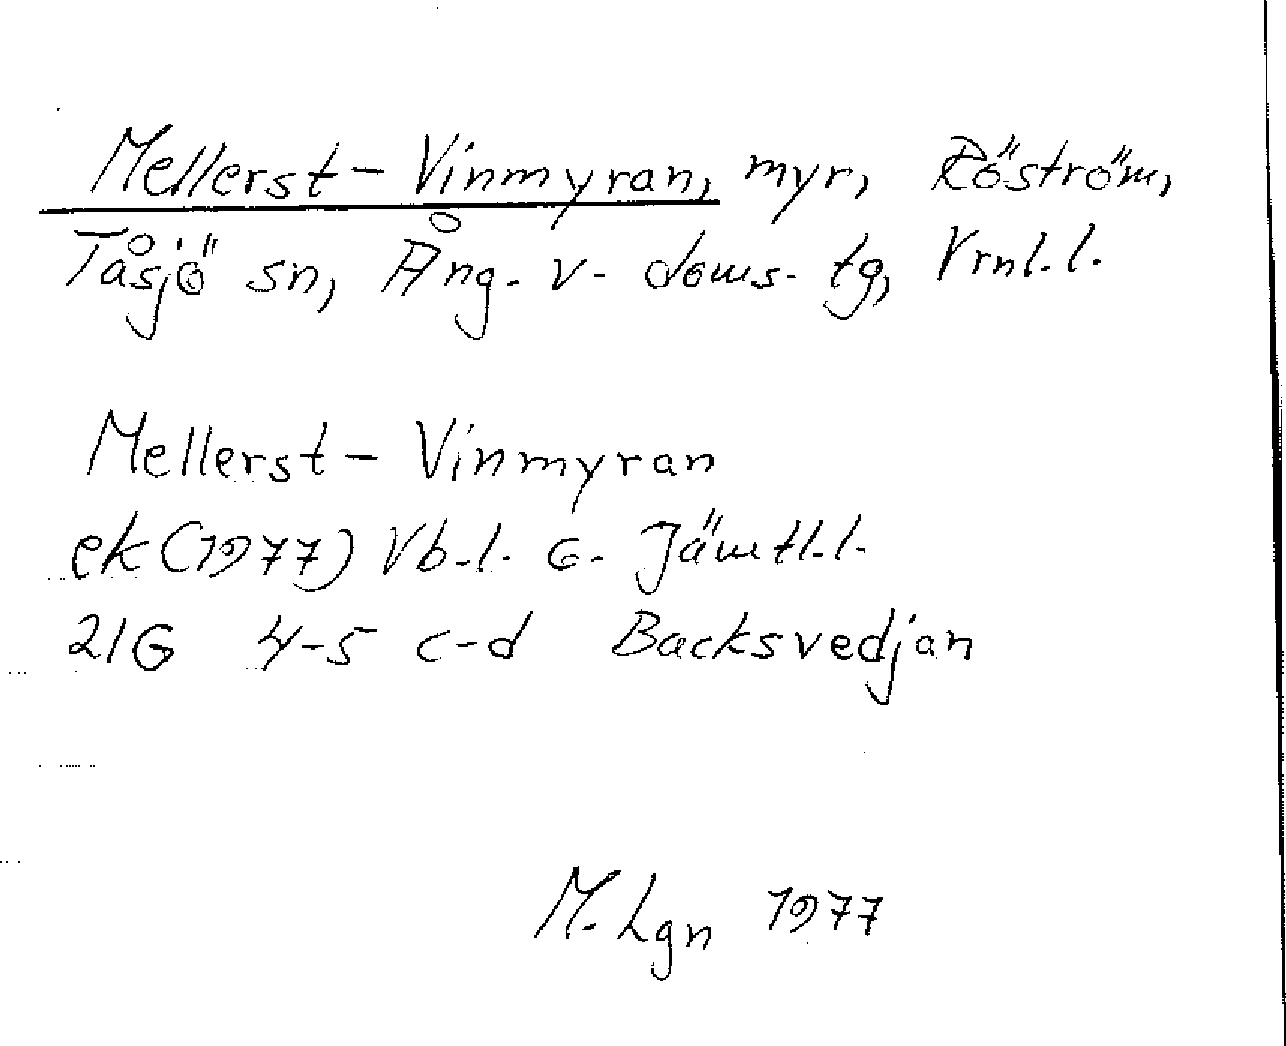 Mellerst-Vinmyran, myr, Röström,
Tåsjö sn, Ång. v- doms- tg, Vrnl.l.
Mellerst-Vinmyran
ek (1977) Vb.l. o. Jämtl.l.
21G 4-5 c-d Backsvedjan
M. Lgn 1977